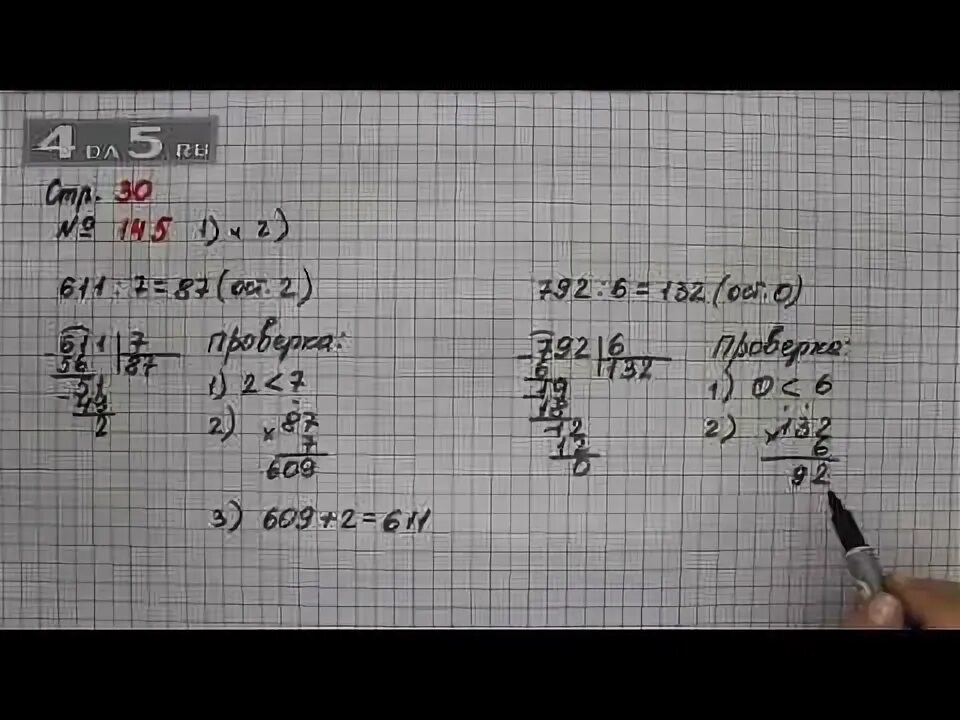 4 DA 5.RU
Стр. 30
№ 145 1) и 2)
611 : 7 = 87 (ост. 2)
611 | 7
56 | 87
51
49
2
Проверка:
1) 2 < 7
2) × 87
7
609
3) 609 + 2 = 611
792 : 6 = 132 (ост. 0)
792 | 6
6 | 132
19
18
12
12
0
Проверка:
1) 0 < 6
2) × 132
6
92